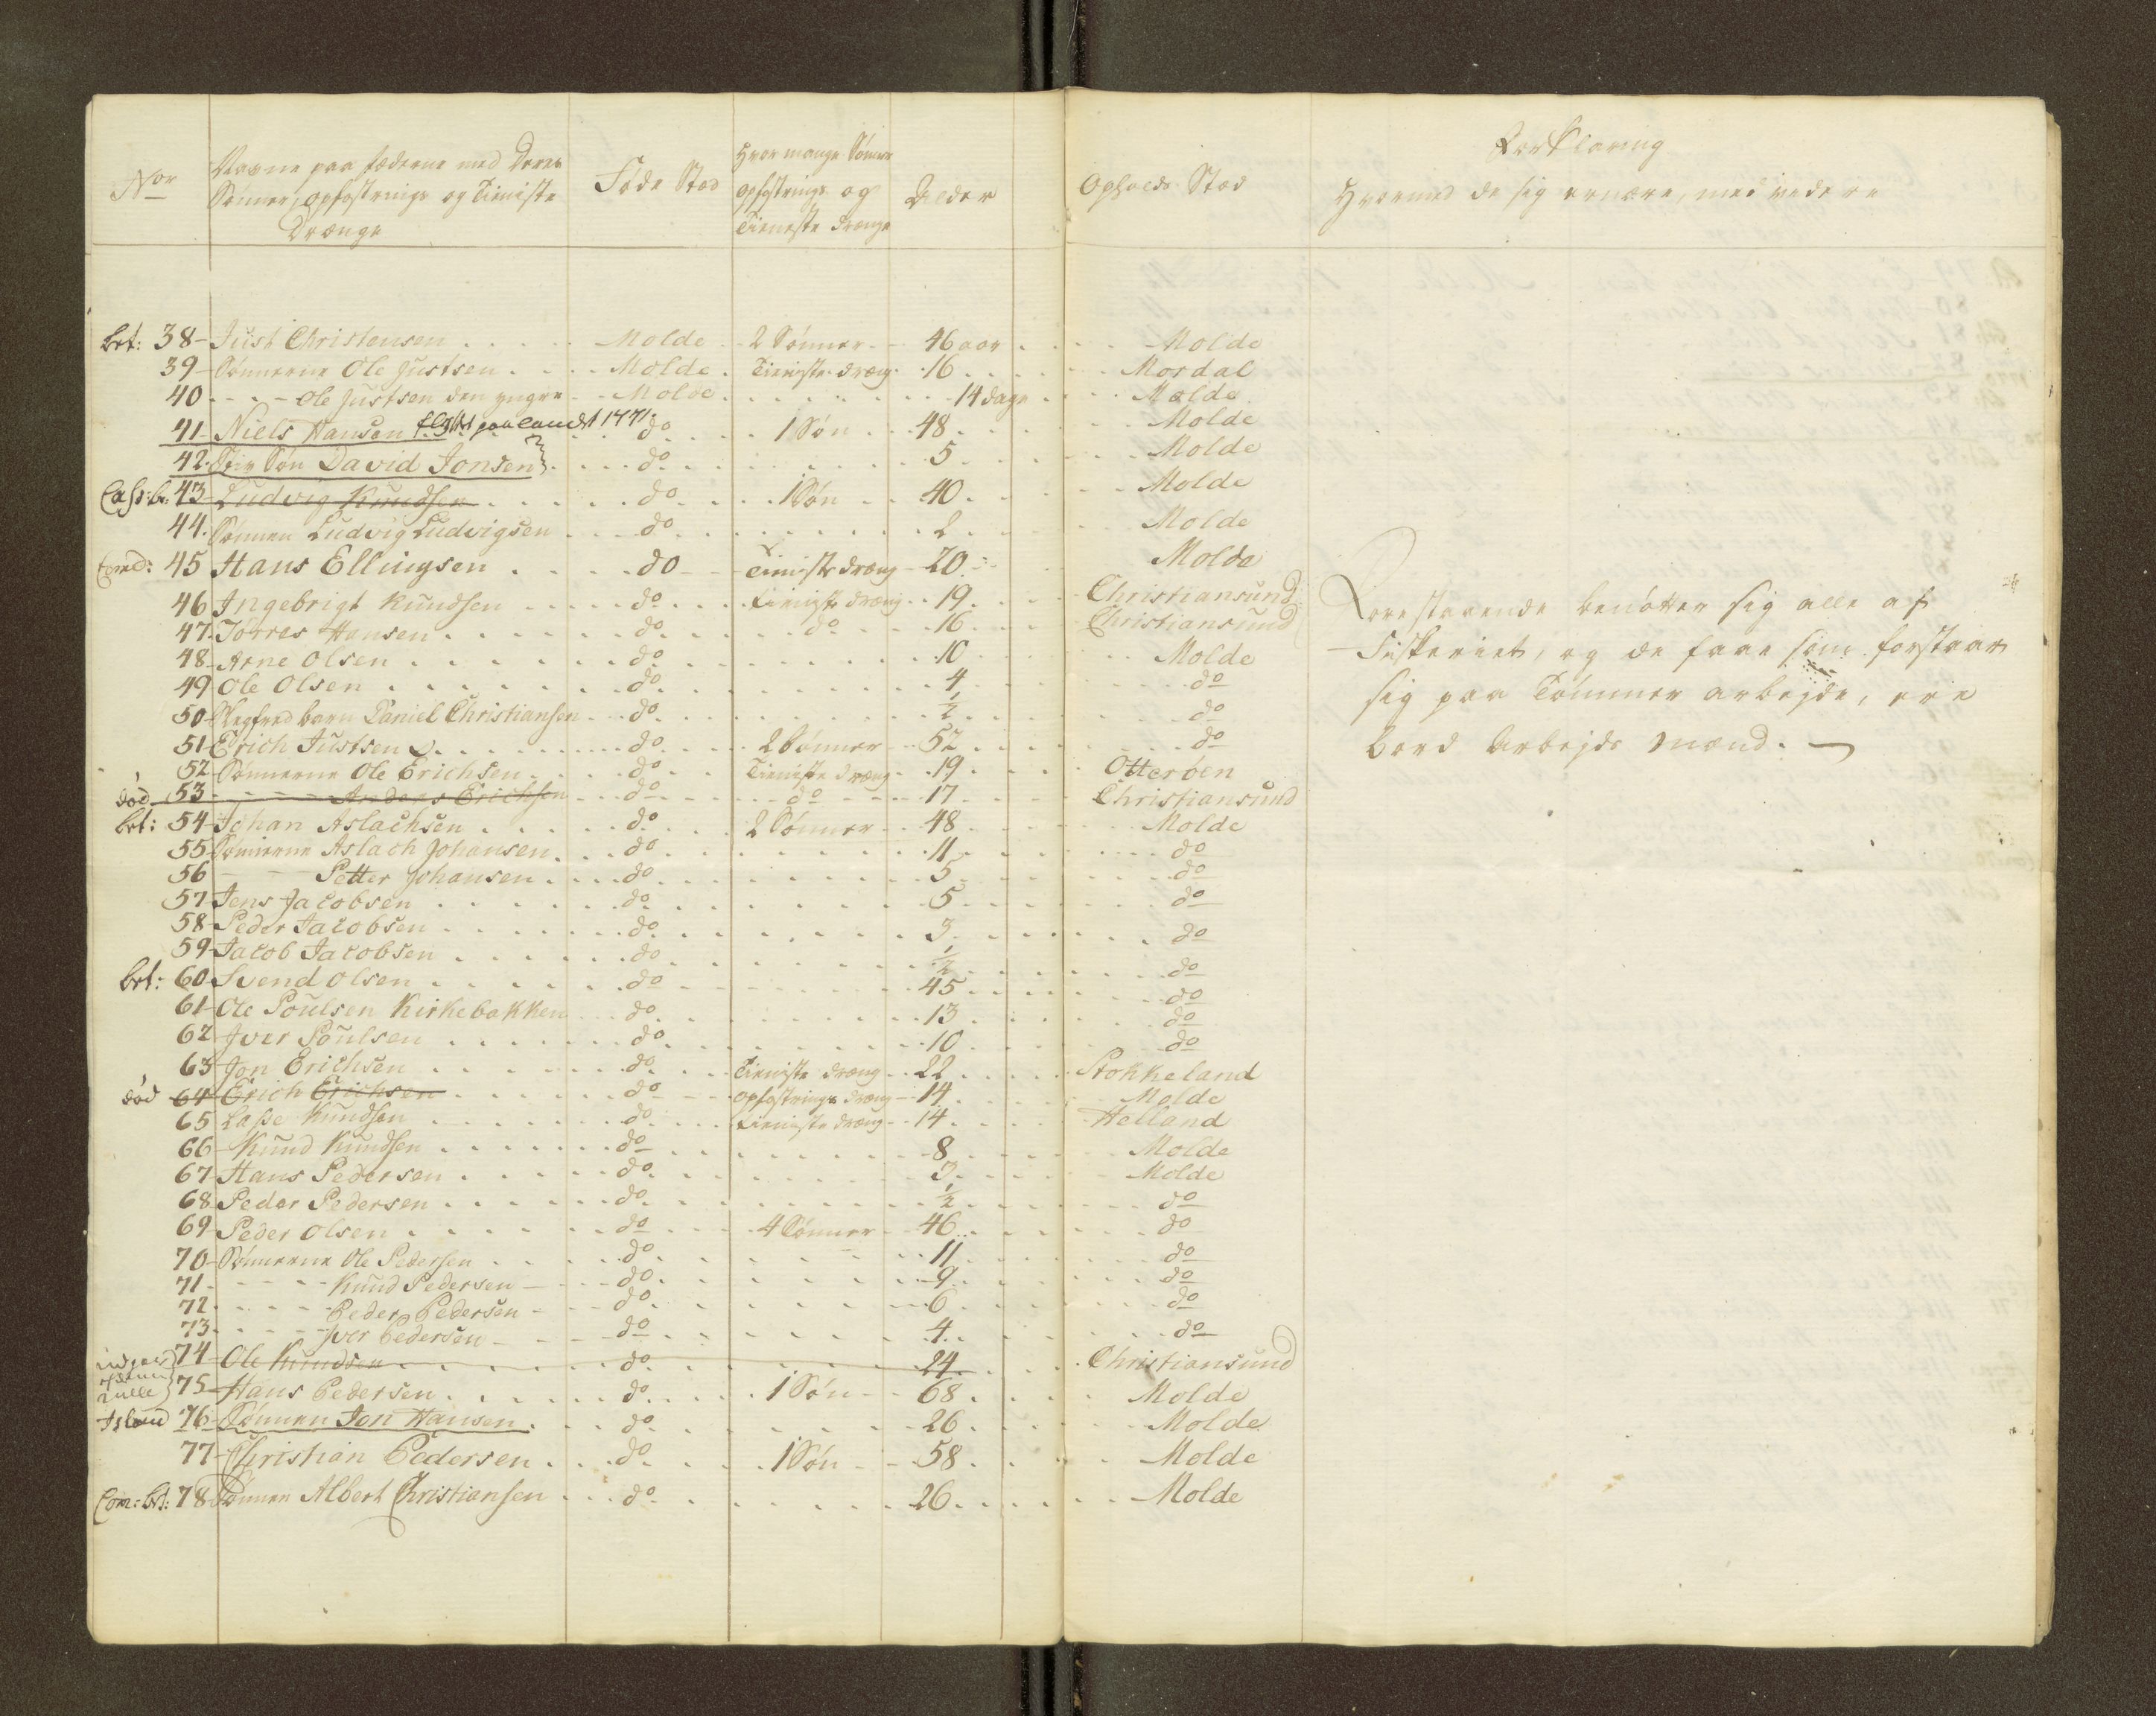 Nor Navne paa Fædrene med Deres Sønner, opfostrings og Tieniste Drænge Føde Stæd Hvor mange Sønner opfostrings og Tieneste Drenge Alder Opholds Stæd Forklaring
Hvormed de sig ernære, med videre
bet: 38 Just Christensen Molde 2 Sønner 46 aar Molde
39 Sønnerne Ole Justsen Molde Tieniste dræng 16 Mordal
40 - - - Ole Justsen den yngre Molde 14 dage Molde
41 Niels Hansen flytt paa landet 1771 do 1 Søn 48 Molde
42 Søn David Jonsen do 5 Molde
43 Ludvig Knudsen do 1 Søn 40 Molde
44 Sønnen Ludvig Ludvigsen do 2 Molde
45 Hans Ellingsen do Tieniste dræng 20 Molde
46 Ingebrigt Knudsen do tieniste dræng 19 Christiansund
47 Jørres Hansen do do 16 Christiansund
48 Arne Olsen do 10 Molde
49 Ole Olsen do 4 do
50 barn Daniel Christiansen do 1/2 do
51 Erich Justsen do 2 Sønner 52 do
52 Sønnerne Ole Erichsen do Tieniste dræng 19 Otterøen
død 53 - - - Anders Erichsen do do 17 Christiansund
bet: 54 Johan Aslachsen do 2 Sønner 48 Molde
55 Sønnerne Aslach Johansen do 11 do
56 - - Petter Johansen do 5 do
57 Jens Jacobsen do 5 do
58 Peder Jacobsen do 3 do
59 Jacob Jacobsen do 1/2 do
bet: 60 Svend Olsen do 45 do
61 Ole Poulsen Kirkebakken do 13 do
62 Iver Poulsen do 10 do
63 Jon Erichsen do Tieniste dræng 22 Stokkeland
død 64 Erich Erichsen do opfostrings dræng 14 Molde
65 Lasse Knudsen do tieniste dræng 14 Helland
66 Knud Knudsen do 8 Molde
67 Hans Pedersen do 3 Molde
68 Peder Pedersen do 1/2 do
69 Peder Olsen do 4 Sønner 46 do
70 Sønnerne Ole Pedersen do 11 do
71 - - - Knud Pedersen do 9 do
72 - - - Peder Pedersen do 6 do
73 - - - Iver Pedersen do 4 do
74 Ole Knudsen do 24 Christiansund
75 Hans Pedersen do 1 Søn 68 Molde
Island 76 Sønnen Jon Hansen do 26 Molde
77 Christian Pedersen do 1 Søn 58 Molde
Com: bet: 78 Sønnen Albert Christiansen do 26 Molde
Forestaaende benøtter sig alle af
Fiskeriet, og de faae som forstaar
sig paa Tømmer arbejde, ere
bord Arbejds Mænd.